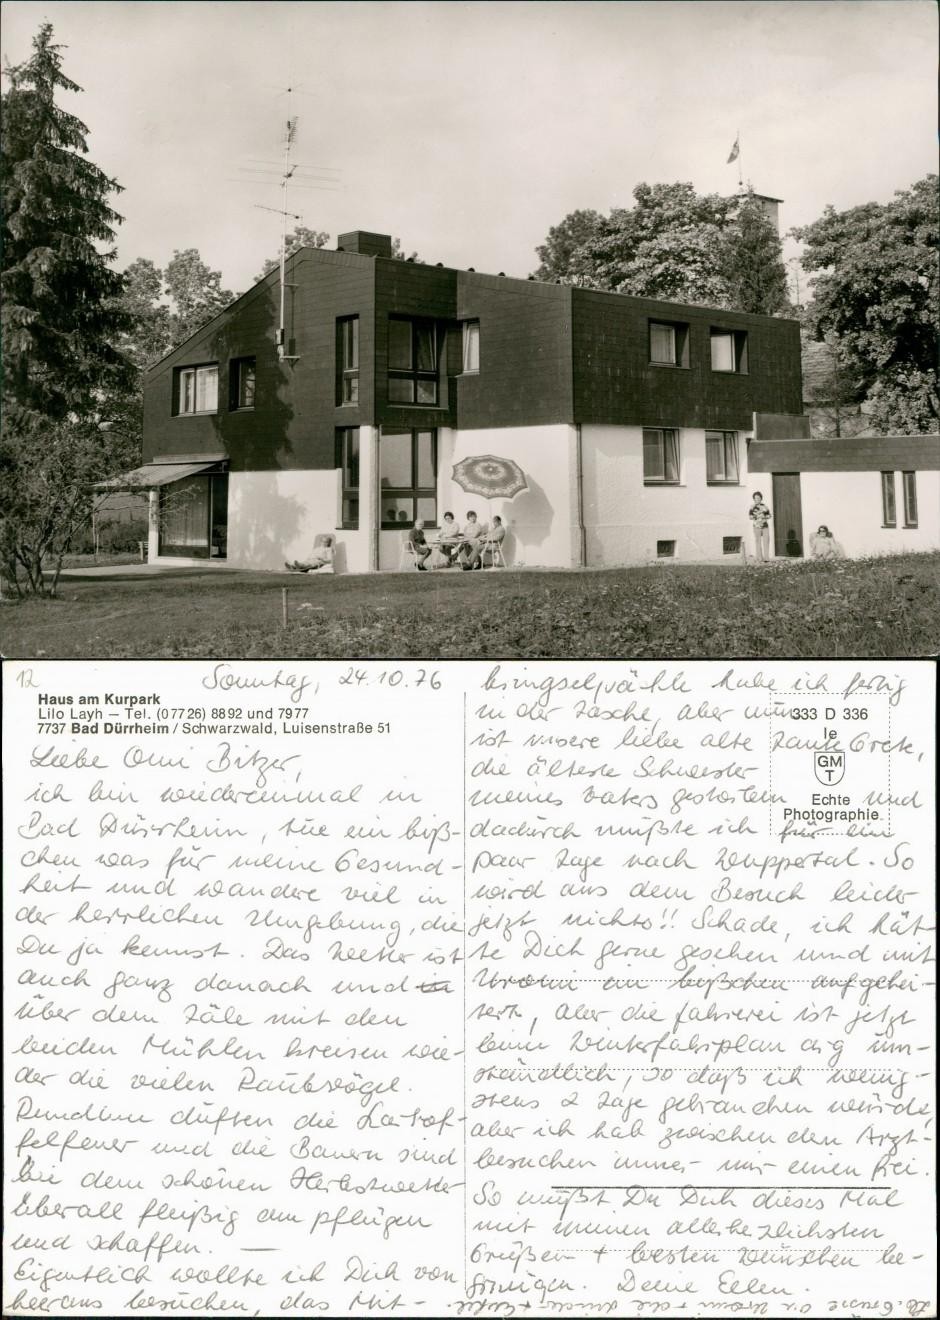 12
Sonntag, 24.10.76
Haus am Kurpark
Lilo Layh – Tel. (07726) 8892 und 7977
7737 Bad Dürrheim / Schwarzwald, Luisenstraße 51
Liebe Omi Bitzer,
ich bin wiedereinmal in
Bad Dürrheim, tue ein biß-
chen was für meine Gesund-
heit und wandere viel in
der herrlichen Umgebung, die
Du ja kennst. Das Wetter ist
auch ganz danach und
über dem Täle mit den
beiden Mühlen kreisen wie-
der die vielen Raubvögel.
Rundum duften die Kartof-
felfeuer und die Bauern sind
bei dem schönen Herbstwetter
überall fleißig am pflügen
und schaffen. —
Eigentlich wollte ich Dich von
hier aus besuchen, das Mit-
bringsel habe ich fertig
in der Tasche, aber nun
ist unsere liebe alte Tante Grete,
die älteste Schwester
meines Vaters gestorben und
dadurch mußte ich für ein
paar Tage nach Wuppertal. So
wird aus dem Besuch leider
jetzt nichts!! Schade, ich hät-
te Dich gerne gesehen und mit
Uromi ein bißchen aufgehei-
tert, aber die Fahrerei ist jetzt
beim Winterfahrplan arg um-
ständlich, so daß ich wenig-
stens 2 Tage gebrauchen würde,
aber ich hab zwischen den Arzt-
besuchen immer nur einen frei.
So mußt Du Dich dieses Mal
mit meinen allerherzlichsten
Grüßen + besten Wünschen be-
gnügen. Deine Ellen.
333 D 336
le
GM
T
Echte
Photographie